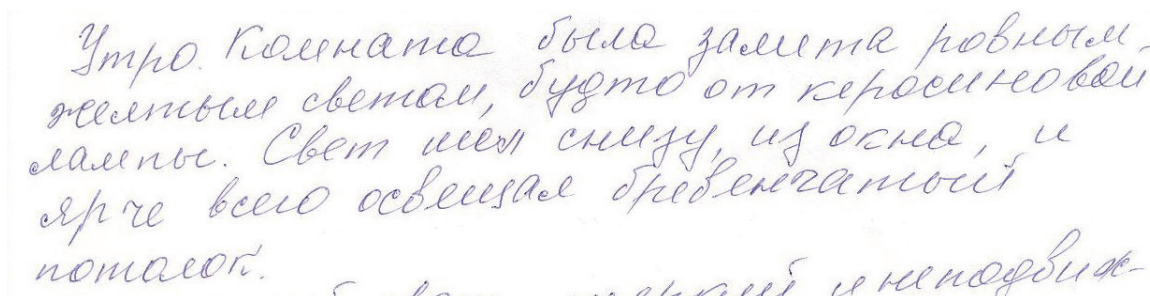 Утро. Комната была залита ровным,
желтым светом, будто от керосиновой
лампы. Свет шел снизу, из окна, и
ярче всего освещал бревенчатый
потолок.
и неподвиж-